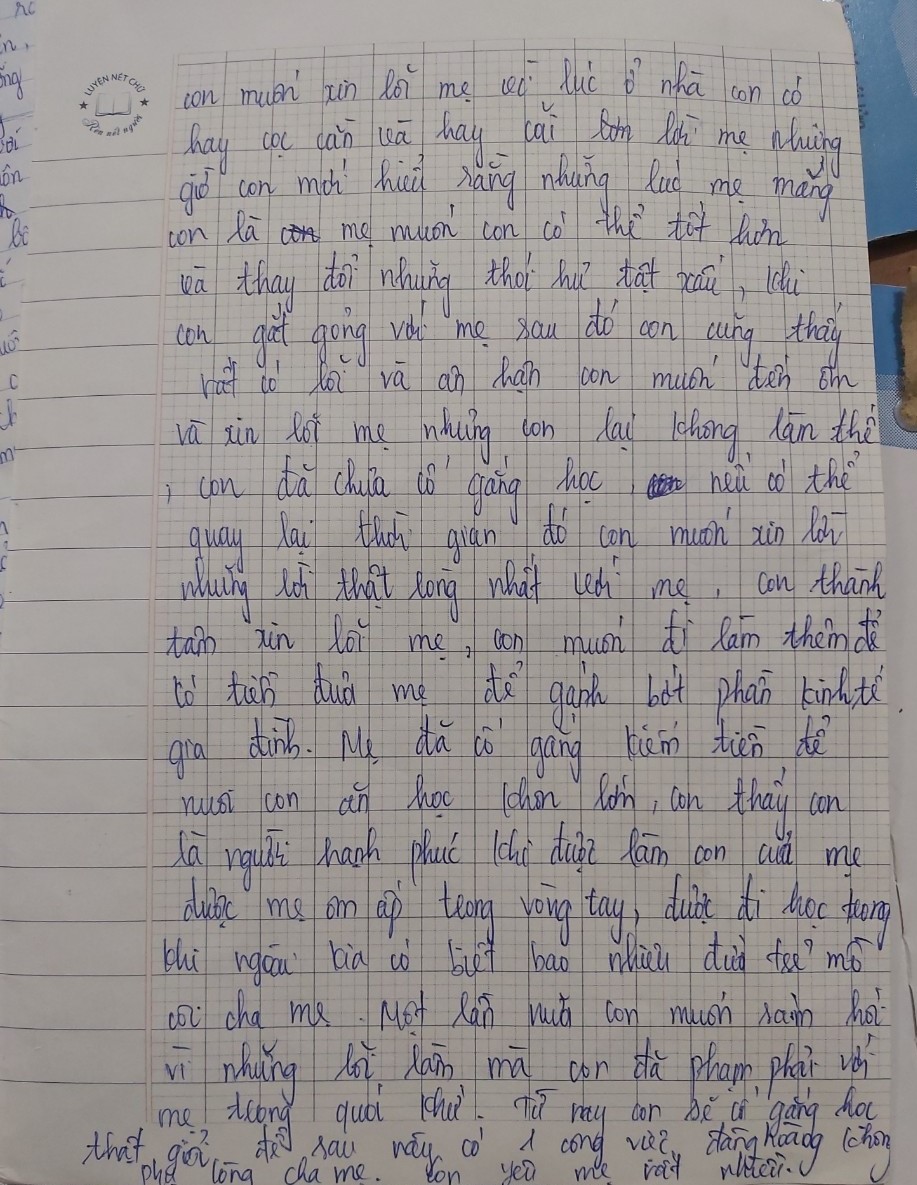 LUYỆN NÉT CHỮ
Rèn nết người
con muốn xin lỗi mẹ vì lúc ở nhà con có
hay cọc cằn và hay cãi lời mẹ nhưng
giờ con mới hiểu rằng những lúc mẹ mắng
con là mẹ muốn con có thể tốt hơn
và thay đổi những thói hư tật xấu, khi
con gắt gỏng với mẹ sau đó con cũng thấy
rất có lỗi và ân hận con muốn đến ôm
và xin lỗi mẹ nhưng con lại không làm thế
, con đã chưa cố gắng học, nếu có thể
quay lại thời gian đó con muốn xin lỗi
những lời thật lòng nhất với mẹ, con thành
tâm xin lỗi mẹ, con muốn đi làm thêm để
có tiền đưa mẹ để gánh bớt phần kinh tế
gia đình. Mẹ đã cố gắng kiếm tiền để
nuôi con ăn học khôn lớn, con thấy con
là người hạnh phúc khi được làm con của mẹ
được mẹ ôm ấp trong vòng tay, được đi học trong
khi ngoài kia có biết bao nhiêu đứa trẻ mồ
côi cha mẹ. Một lần nữa con muốn sám hối
vì những lỗi lầm mà con đã phạm phải với
mẹ trong quá khứ. Từ nay con sẽ cố gắng học
thật giỏi để sau này có 1 công việc đàng hoàng không
phụ lòng cha mẹ. Con yêu mẹ rất nhiều.